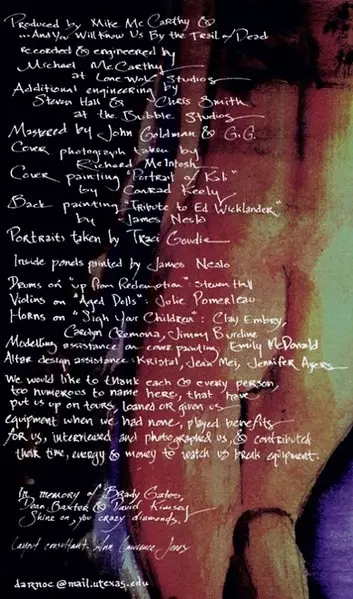 Produced by Mike McCarthy &
...And You Will Know Us By the Trail of Dead
recorded & engineered by
Michael McCarthy
at Lone Wolf Studios
Additional engineering by
Steven Hall & Chris Smith
at the Bubble Studios
Mastered by John Golman & G.G.
Cover photograph taken by
Richard McIntosh
Cover painting "Portrait of Kali"
by Conrad Keely
Back painting "Tribute to Ed Wicklander"
by James Neslo
Portraits taken by Traci Goudie
Inside panels painted by James Neslo
Drums on "up from Redemption": Steven Hall
Violins on "Aged Dolls": Jolie Pomerleau
Horns on "Sigh Your Children": Clay Embry,
Carolyn Cremona, Jimmy Burdine
Modelling assistance on cover painting, Emily McDonald
Altar design assistance: Kristal, Jean Mei, Jennifer Ayers
We would like to thank each & every person,
too numerous to name here, that have
put us up on tours, loaned or given us
equipment when we had none, played benefits
for us, interviewed and photographed us & contributed
their time, energy & money to watch us break equipment.
In memory of Brady
Dean Baxter & David Kimsey
Shine on, you crazy diamonds.
Layout consultant: Ann Lawrence Jones
darnoc@mail.utexas.edu